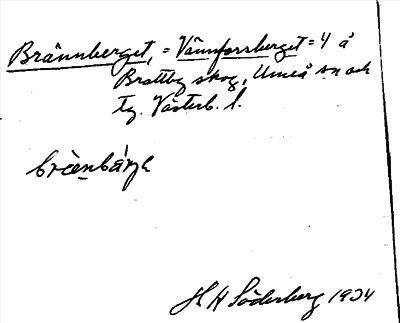 Brännberget, = Vännforsberget = 4 å
Brattby skog, Umeå sn och
tg. Västerb. l.
brèenbárje
H H Söderberg 1934